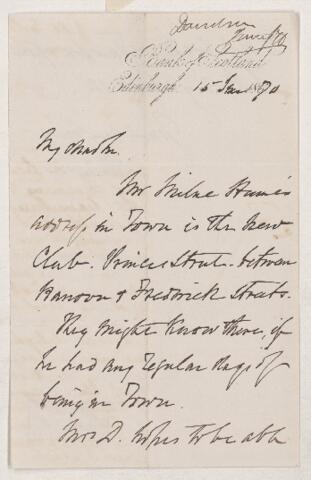 Davidson
Bank of Scotland
Edinburgh 15 Jan 1870
My dear
Mr Milne Home's
address in Town is the New
Club. Princes Street. between
Hanover & Fredrick Streets.
They might know there, if
he had any regular days of
being in Town.
Mrs D. hopes to be able